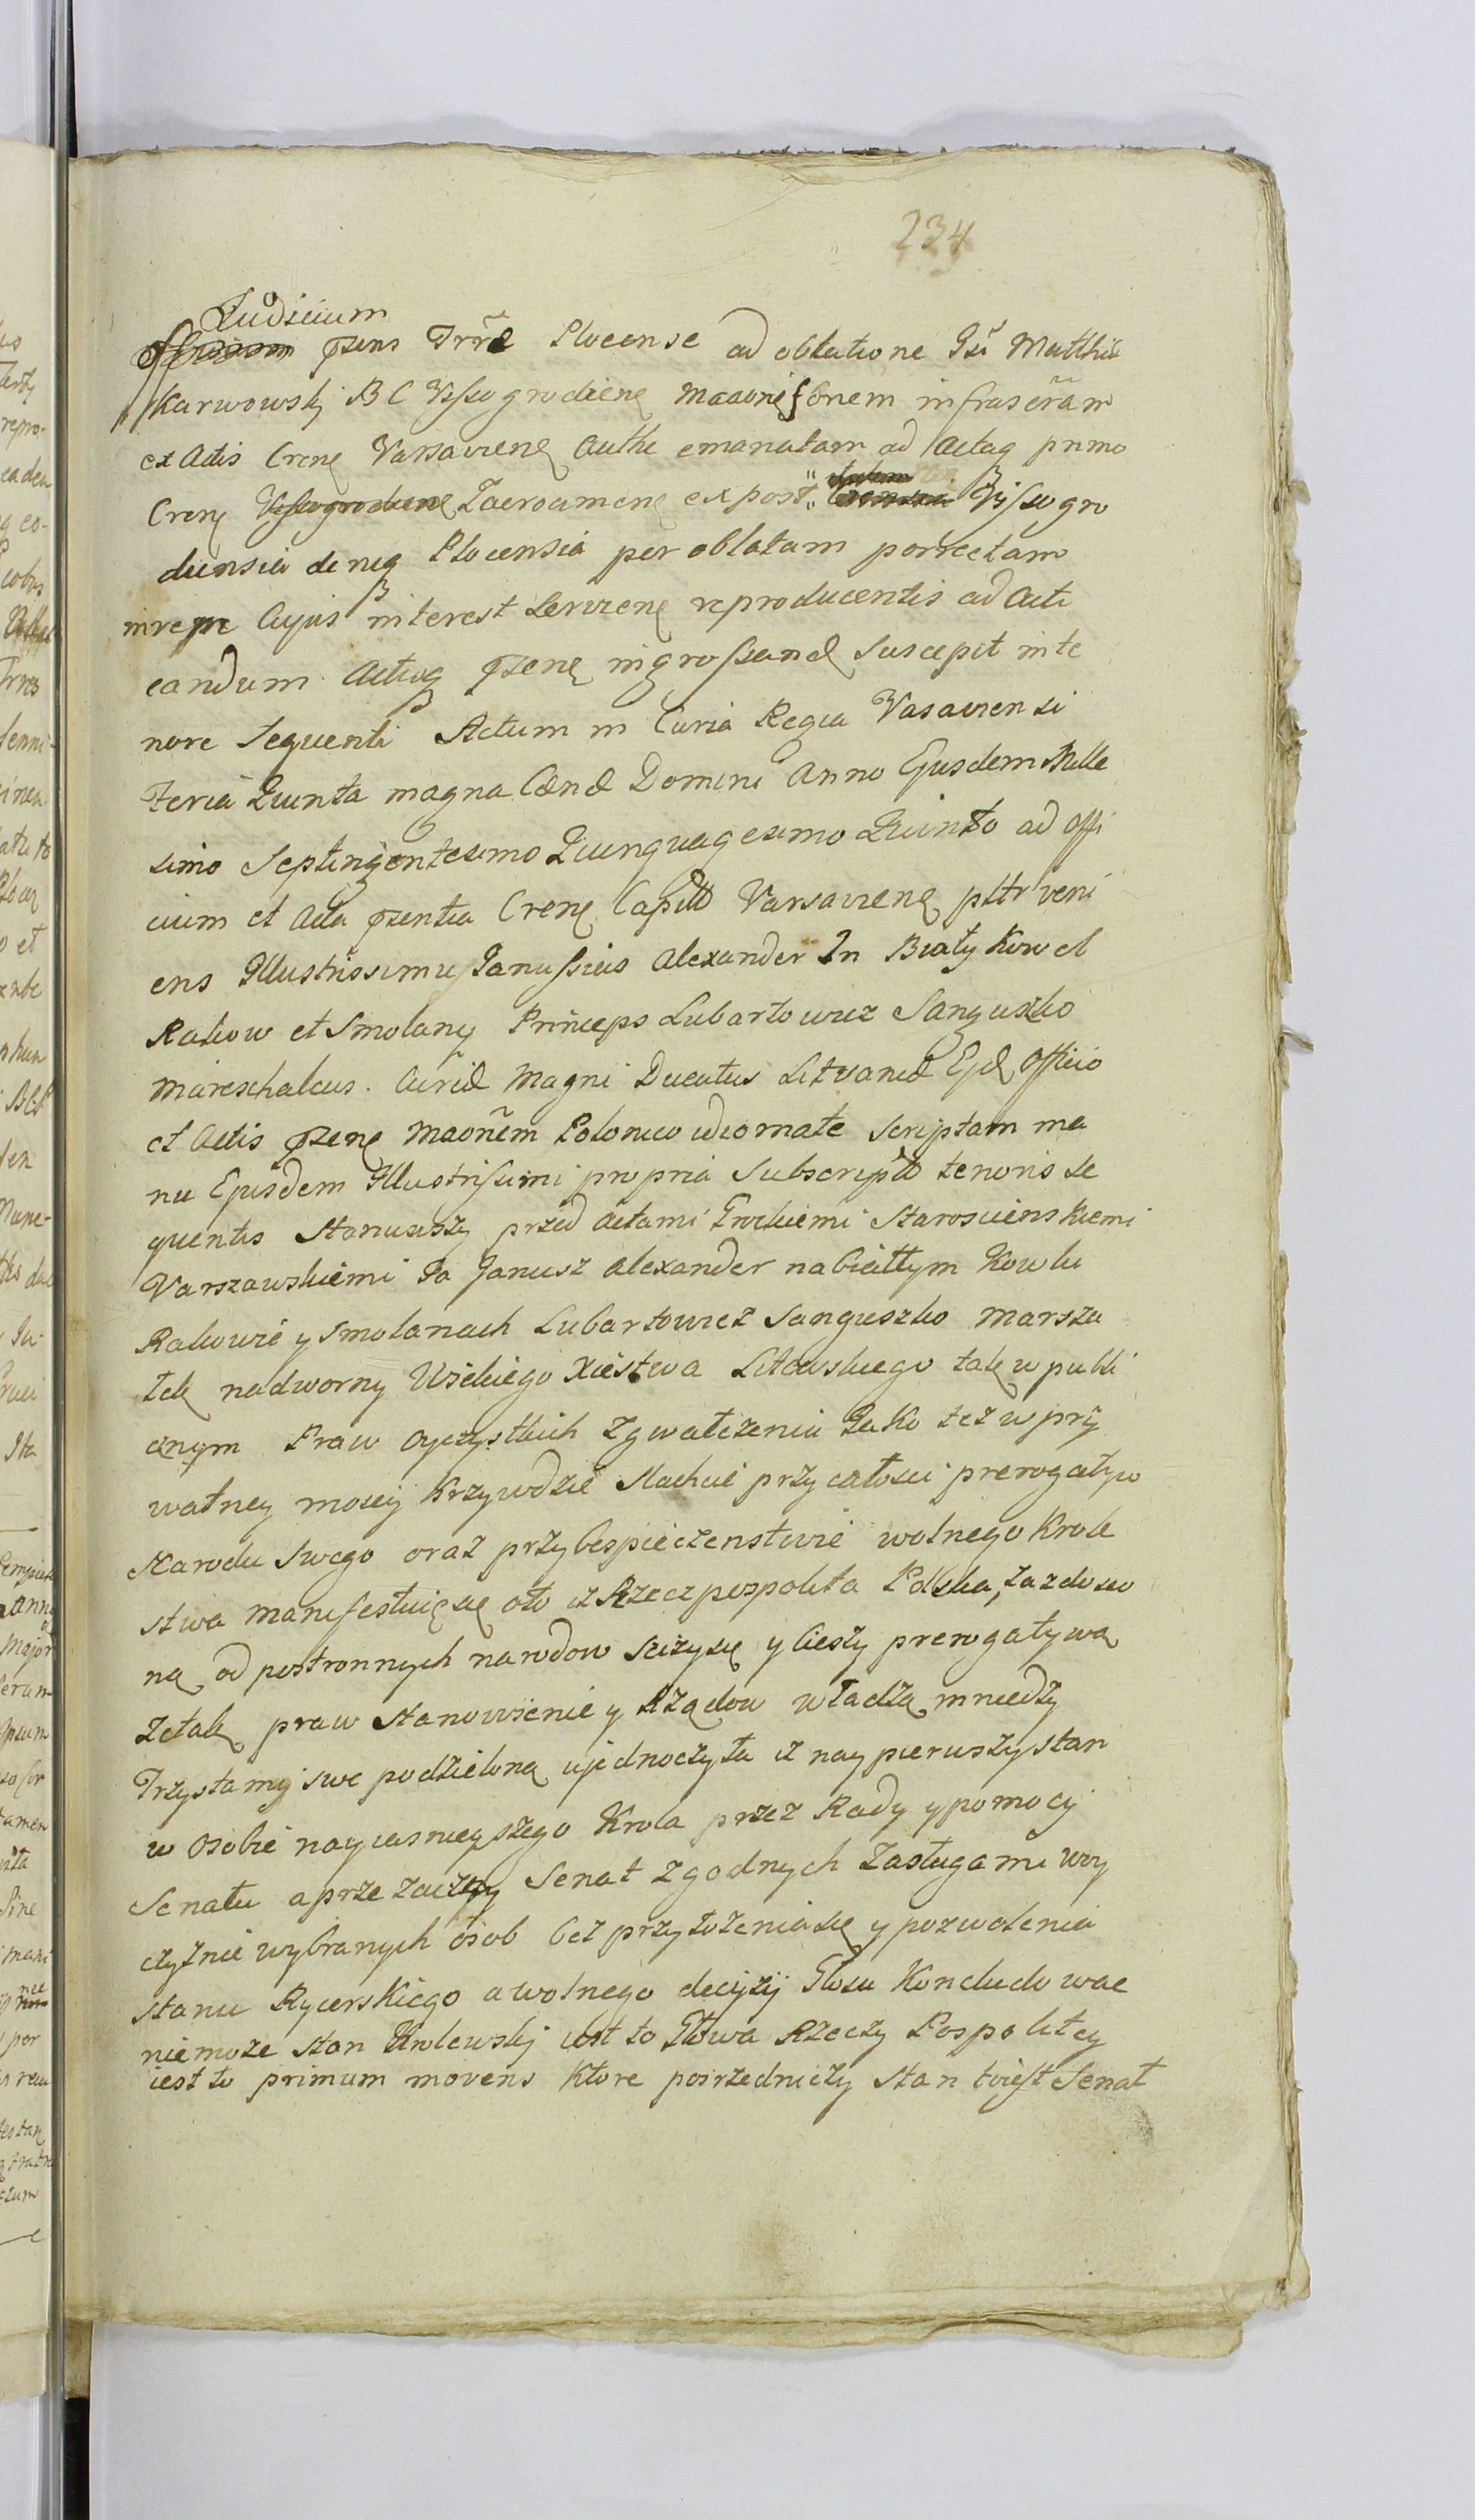 234
Judicium
Officium pzens Trrẽ Plocense ad oblatione Gsi Matthiæ
Karwowskj B C Vyssogrodiene maaonis onem infrascrãm
ex Actis Crene Varsaviene authe emanatam ad Actaq primo
Crene Vyssogrodiene Zacrocimene expost Vyssogro
diensia deniq Plocensia per oblatam porrectam
inreqre Cujus interest serviene reproducentis ad Acti
candum Actisq pzene ingrossand suscepit in te
nore sequenti Actum in Curia Regia Vasaviensi
Feria Quinta magna Cænæ Domini Anno Ejusdem Mille
simo Septingentesimo Quinquagesimo Quinto ad Offi
cium et Acta pzentia Crene Capitt Varsaviene pltr veni
ens Jllustrissimus Janussius Alexander In Biały Kowel
Rakow et Smolany Princeps Lubartowicz Sanguszko
Mareschalcus Curiæ Magni Ducatus Litvaniæ Ejd Officio
et Actis pzene maoñem Polonico idiomate scriptam ma
nu Ejusdem Jllustrissimi propria subscripto tenoris se
quentis Stanuwszy przed Actami Grodzkiemi Starosciens kiemi
Varszawskiemi Ja Janusz Alexander na białłym Kowlu
Rakowie y Smolanach Lubartowicz Sanguszko Marsza
łek nadworny Wielkiego Xiestwa Litewskiego tak w publi
cznym Praw oyczystkich zgwałczeniu Jako tez w pry
watney moiey krzywdzie Szlachcie przy całosci prerogatyw
Narodu Swego oraz przy bespieczenstwie wolnego Krole
stwa manifestuię się oto iz Rzeczpospolita Polska, zazdroscio
ną od postronnych narodow szczycisię y cieszy prerogatywą
ze tak praw stanowienie y Rządow władzą mniedzy
Trzy stany swe podzieloną ujednoczyła iz naypierwszy stan
w osobie nayiasnieyszego Krola przez Rady y pomocy
Senatu a przezacny Senat zgodnych zasługami w oy
czyznie wybranych osob bez przyłożenia się y pozwolenia
stanu Rycerskiego a wolnego decyzij Głosu Konkludowac
niemoze stan Krolewskj iest to Głowa Rzeczy Pospolitey
iest to primum movens ktore posrzedniczy stan toiest Senat